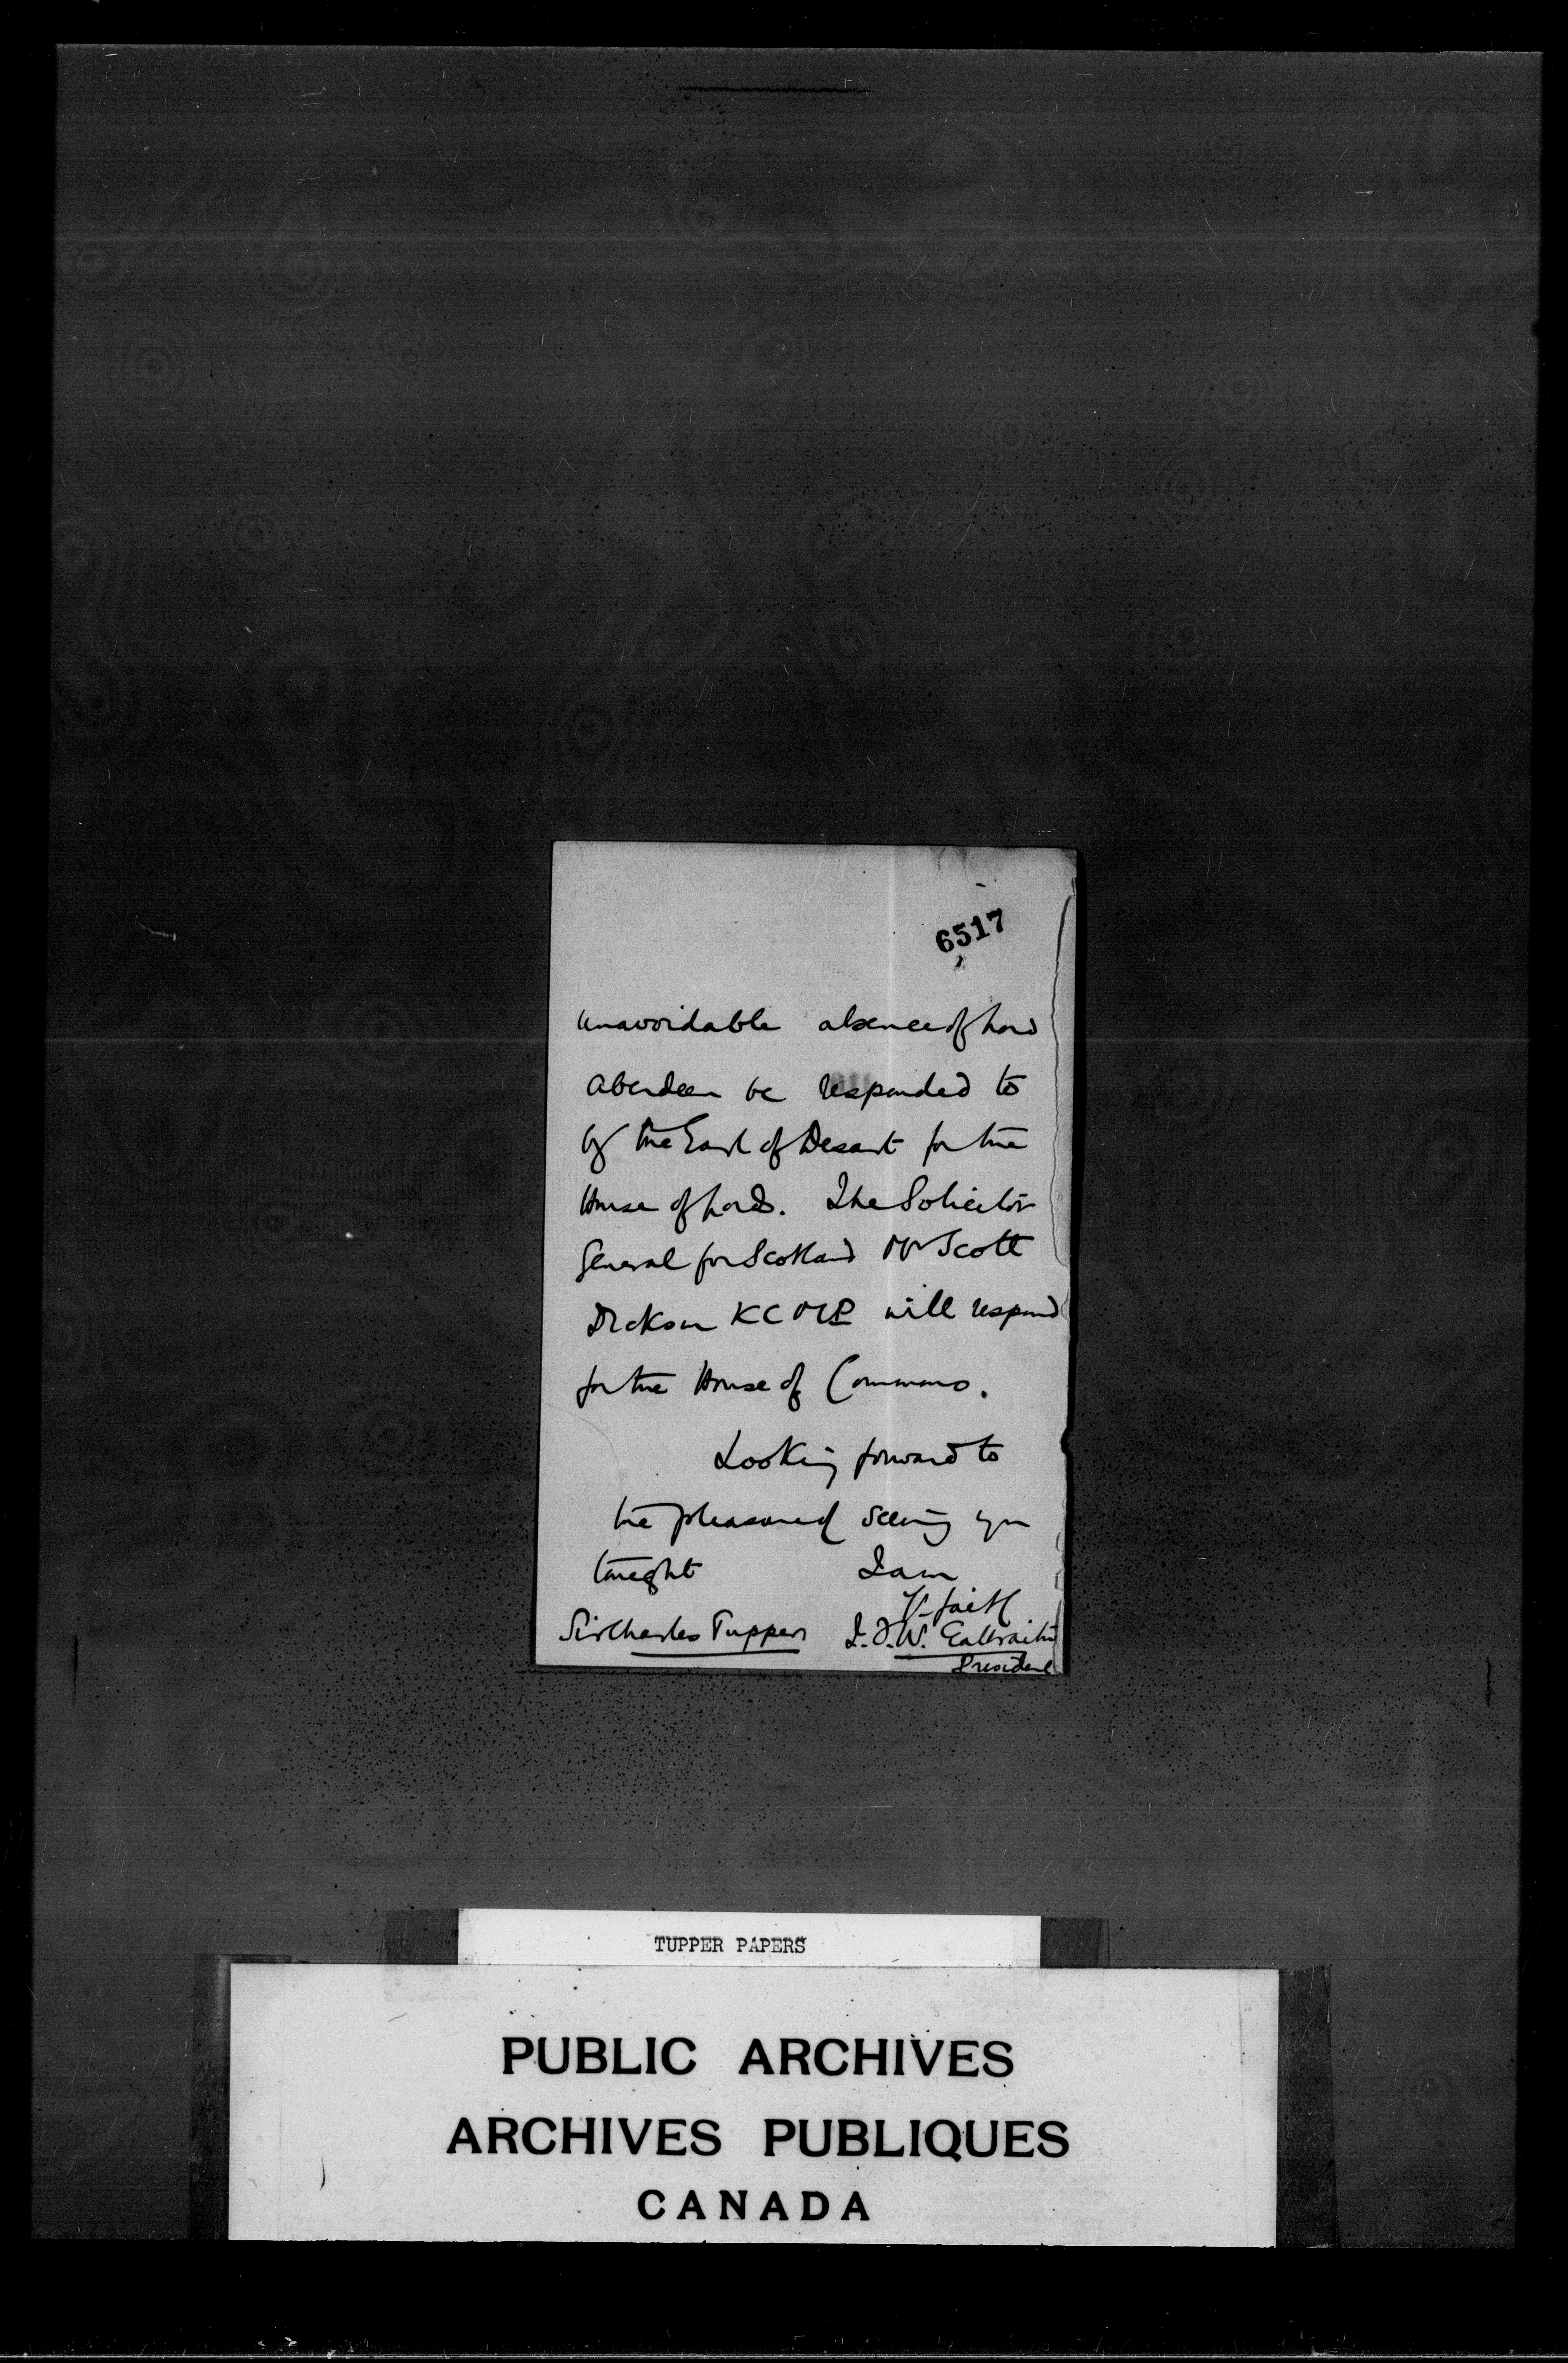 6517
unavoidable absence of Lord
Aberdeen be responded to
by the Earl of Desart for the
House of Lords. The Solicitor
General for Scotland Mr Scott
Dickson KC MP will respond
for the House of Commons.
Looking forward to
the pleasure of seeing you
tonight I am
Yrs faith
Sir Charles Tupper T. J. W. Galbraith
President
TUPPER PAPERS
PUBLIC ARCHIVES
ARCHIVES PUBLIQUES
CANADA